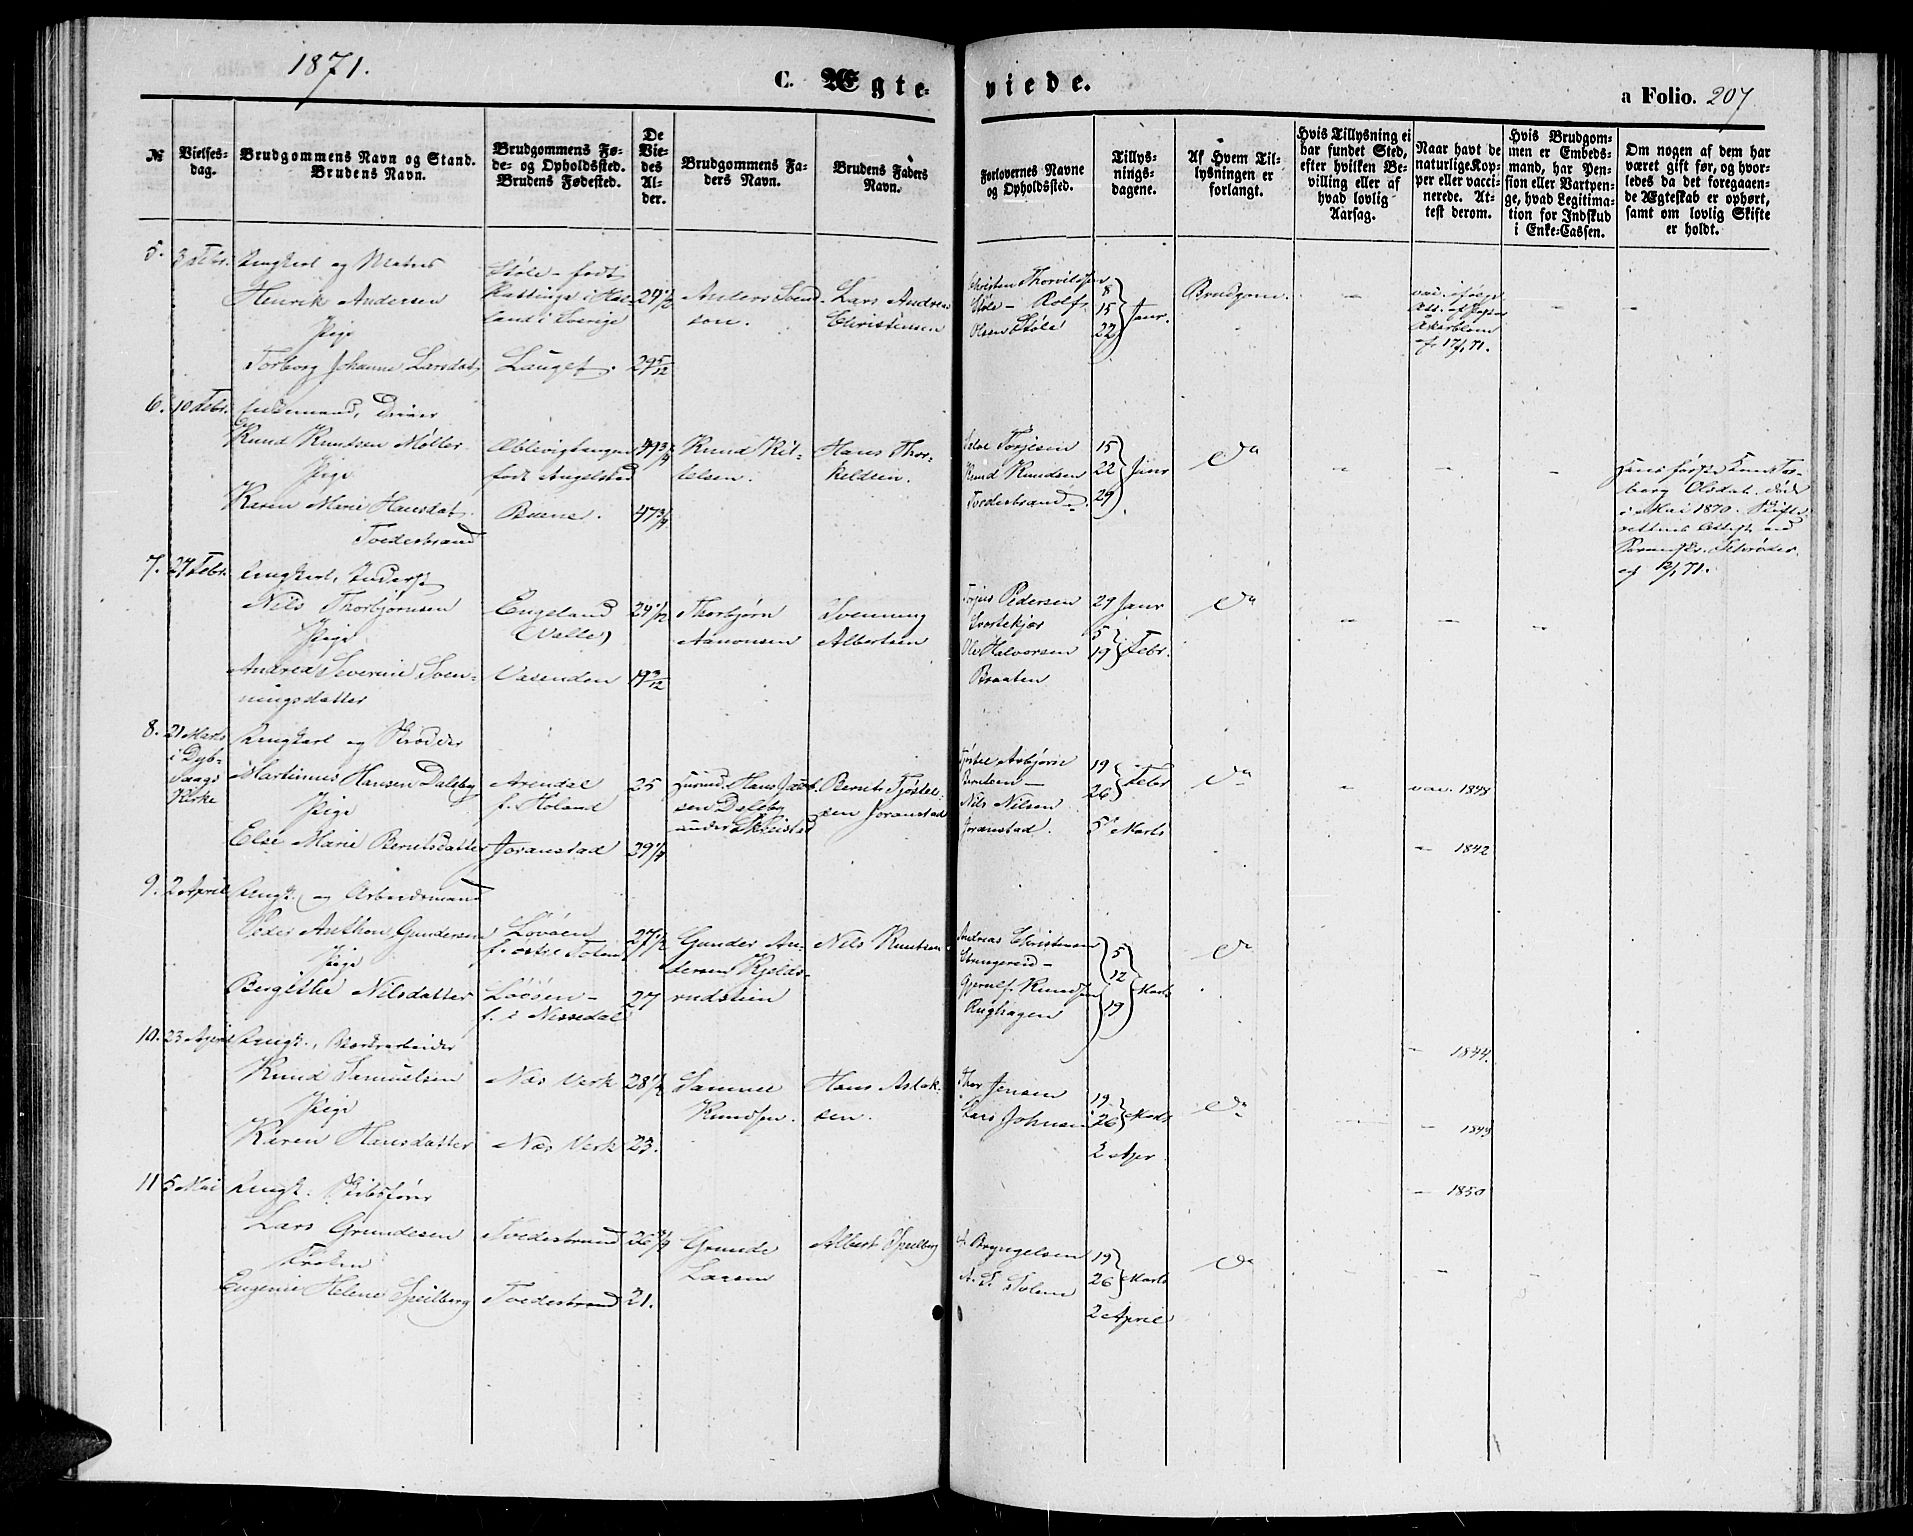 1871.
C. Ægte-
viede.
a Folio. 207
№
Vielses-
dag.
Brudgommens Navn og Stand.
Brudens Navn.
Brudgommens Fø-
de- og Opholdssted.
Brudens Fødested.
De
Vie-
des
Al-
der.
Brudgommens Fa-
ders Navn.
Brudens Faders
Navn.
Forlovernes Navne
og Opholdssted.
Tillys-
nings-
dagene.
Af Hvem Til-
lysningen er
forlangt.
Hvis Tillysning ei
har fundet Sted,
efter hvilken Be-
villing eller af
hvad lovlig
Aarsag.
Naar havt de
naturlige Kop-
per eller vacci-
nerede. At-
test derom.
Hvis Brudgom-
men er Embeds-
mand, har Pen-
sion eller Vartpen-
ge, hvad Legitima-
tion for Indskud
i Enke-Cassen.
Om nogen af dem har
været gift før, og hvor-
ledes da det foregaaen-
de Ægteskab er ophørt,
samt om lovlig Skifte
er holdt.
5. 3 Febr. Ungkarl og Matros
Henrik Andersen
Pige
Torborg Johanne Larsdat
Støle - født
land i Sverige
Lauget.
24 1/2
29 5/12
Anders Svend-
sen.
Lars Andreas
Christensen
Christen Thorvildsen
Støle - Rolf
Olsen Støle
8
15
22
Janr.
Brudgom.
17/1 71.
6. 10 Febr. Enkemand,
Knud Knudsen Møller
Pige
Karen Marie Hansdat.
Tvedestrand
født Angelstad
Buene.
49 3/4
47 3/4
Knud Kit-
telsen.
Hans Thor-
keldsen.
Torjesen
Knud Knudsen
Tvedestrand
15
22
29
Janr
Do
berg Olsdat. død
i Mai 1870. Skifte-
rettens Attest ved
Sorenskr. Schrøder
af 12/1 71.
7. 27 Febr. Ungkarl, Inderst
Nils Thorbjørnsen
Pige
Andrea Severine Sven-
ningsdatter
Engeland
(Valle)
Vasenden
24 1/2
19 3/12
Thorbjørn
Aanonsen
Svenning
Albertsen
Torjus Pedersen
Svartekjær
Ole Halvorsen
Braaten
29 Janr
5
19
Febr.
Do
8. 21 Marts
i Dyb-
vaags
Kirke
Ungkarl og Skrædder
Martinus Hansen Daleby
Pige
Else Marie Berntsdatter
Arendal
f. Høland
Joranstad
25
29 1/4
Huusmd. Hans Jacob-
sen Daleby
Bernt Tjøstel-
sen Joranstad
Tjøstel Asbjørn
Berntsen -
Nils Nilsen
Joranstad.
19
26
Febr
5 Marts
Do
vac. 1848
- 1842
9. 2 April Ungk. og Arbeidsmand
Peder Anthon Gundersen
Pige
Bergithe Nilsdatter
Løvøen
f. østre Toten
Løvøen -
f. i Nissedal
27 1/2
27
Gunder An-
dersen Kjelds-
rudsteien
Nils Knutsen
Andreas Christensen
Strengereid -
Gjerulf Knudsen
Rughagen
5
12
19
Marts
Do
10. 23 April Ungk., Værksarbeider
Knud Samuelsen
Pige
Karen Hansdatter
Næs Verk
Næs Verk
28 1/4
23.
Samuel
Knudsen.
Hans Aslak-
sen.
Thor Jensen
Lars Johnsen
19
26
Marts
2 Apr.
Do
- 1844.
- 1849
11 5 Mai Ungk. Skibsfører
Lars Grundesen
Frøken
Eugenie Helene Speilberg
Tvedestrand
Tvedestrand
26 3/4
21.
Grunde
Larsen
Albert Speilberg
Bryngelsen
19
26
Marts
2 April
Do
- 1850